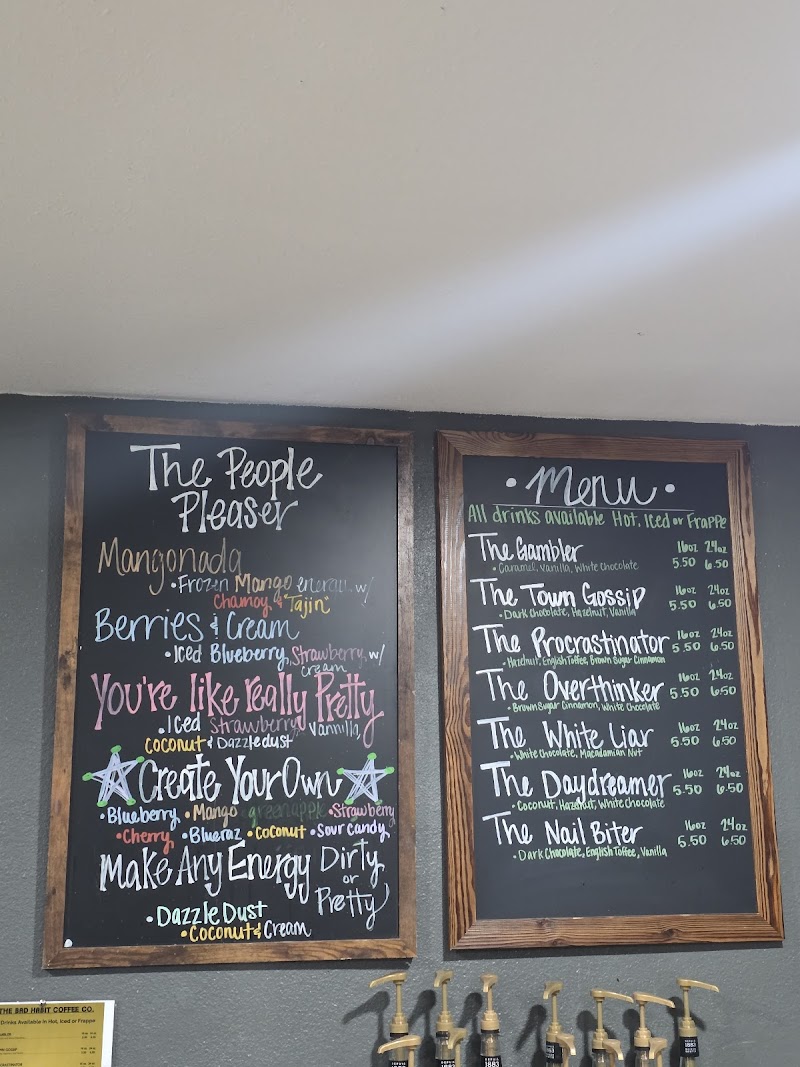 The People
Pleaser
Mangonada
• Frozen Mango energy w/
Chamoy & Tajin
Berries & Cream
• Iced Blueberry, Strawberry, w/
cream
You're like really Pretty
• Iced Strawberry, Vannilla,
Coconut & Dazzledust
Create Your Own
• Blueberry • Mango • greenapple • Strawberry
• Cherry • Blueraz • Coconut • Sour candy
Make Any Energy Dirty
or
Pretty
• Dazzle Dust
• Coconut & Cream
• Menu •
All drinks available Hot, Iced or Frappe
The Gambler 16oz 24oz
• Caramel, Vanilla, White Chocolate 5.50 6.50
The Town Gossip 16oz 24oz
• Dark Chocolate, Hazelnut, Vanilla 5.50 6.50
The Procrastinator 16oz 24oz
• Hazelnut, English Toffee, Brown Sugar Cinnamon 5.50 6.50
The Overthinker 16oz 24oz
• Brown Sugar Cinnamon, White Chocolate 5.50 6.50
The White Liar 16oz 24oz
• White Chocolate, Macadamian Nut 5.50 6.50
The Daydreamer 16oz 24oz
• Coconut, Hazelnut, White Chocolate 5.50 6.50
The Nail Biter 16oz 24oz
• Dark Chocolate, English Toffee, Vanilla 5.50 6.50
THE BAD HABIT COFFEE CO.
Drinks Available in Hot, Iced or Frappe
1883
1883
1883
1883